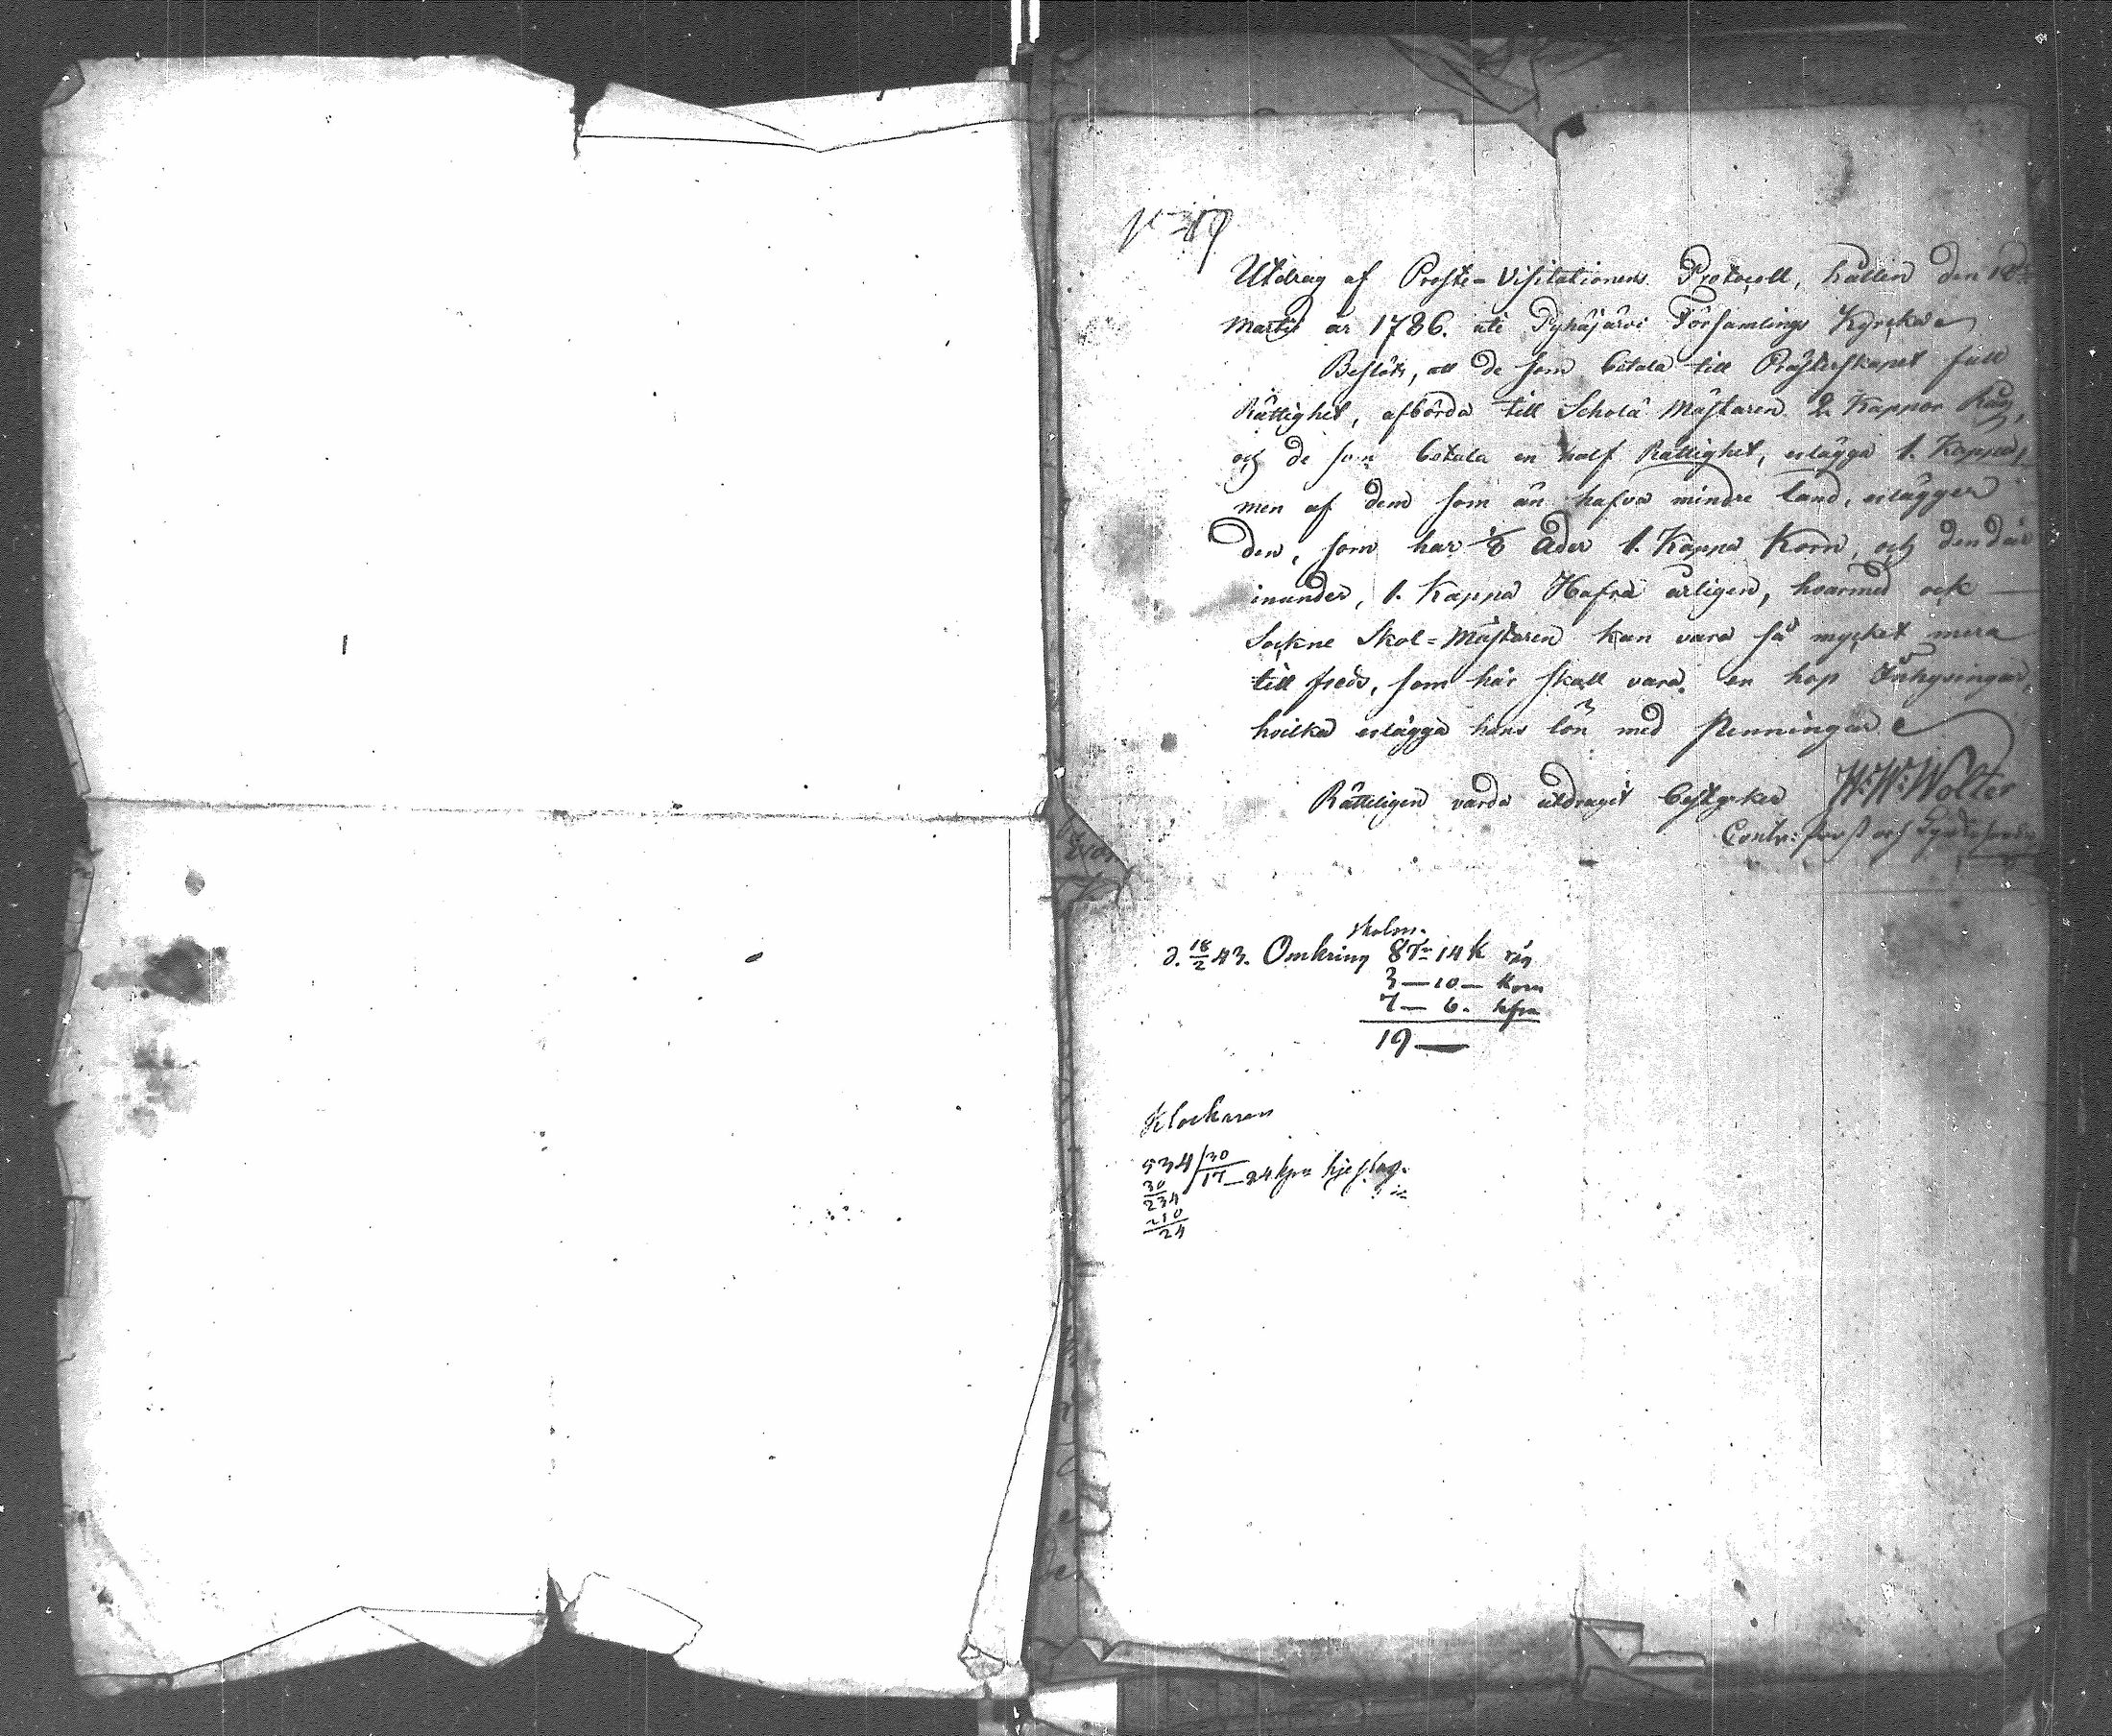 Utdrag af Proste-Visitationens Protocoll, hållen den 18de
Martii år 1786. uti Pyhäjärvi Församlings Kyrcka
Beslöts, att de som betala till Prästerskapet full
Rättighet, afbörda till Scholä Mästaren 2 Kappor Råg,
och de som betala en half Rättighet, erlägga 1. Kappa,
men af dem som än hafva mindre land, erlägger
den, som har 1/8 Ader 1. Kappa Korn, och den där
inunder, 1. Kappa Hafra årligen, hvarmed ock
Sockne Skol-Mästaren kan vara så mycket mera
till freds, som här skall vara en hop Inhysingar,
hvilka erlägga hans lön med Penningar
Rätteligen vara utdragit bestyrker Wolter
Contr: Prost och
skolm.
d. 18/2 43. Omkring 8 Tr 14 K råg
3 — 10 — korn
7 — 6. hfra
19 —
Klockaren
534/30
30 17 — 24 kpr
234
210
24